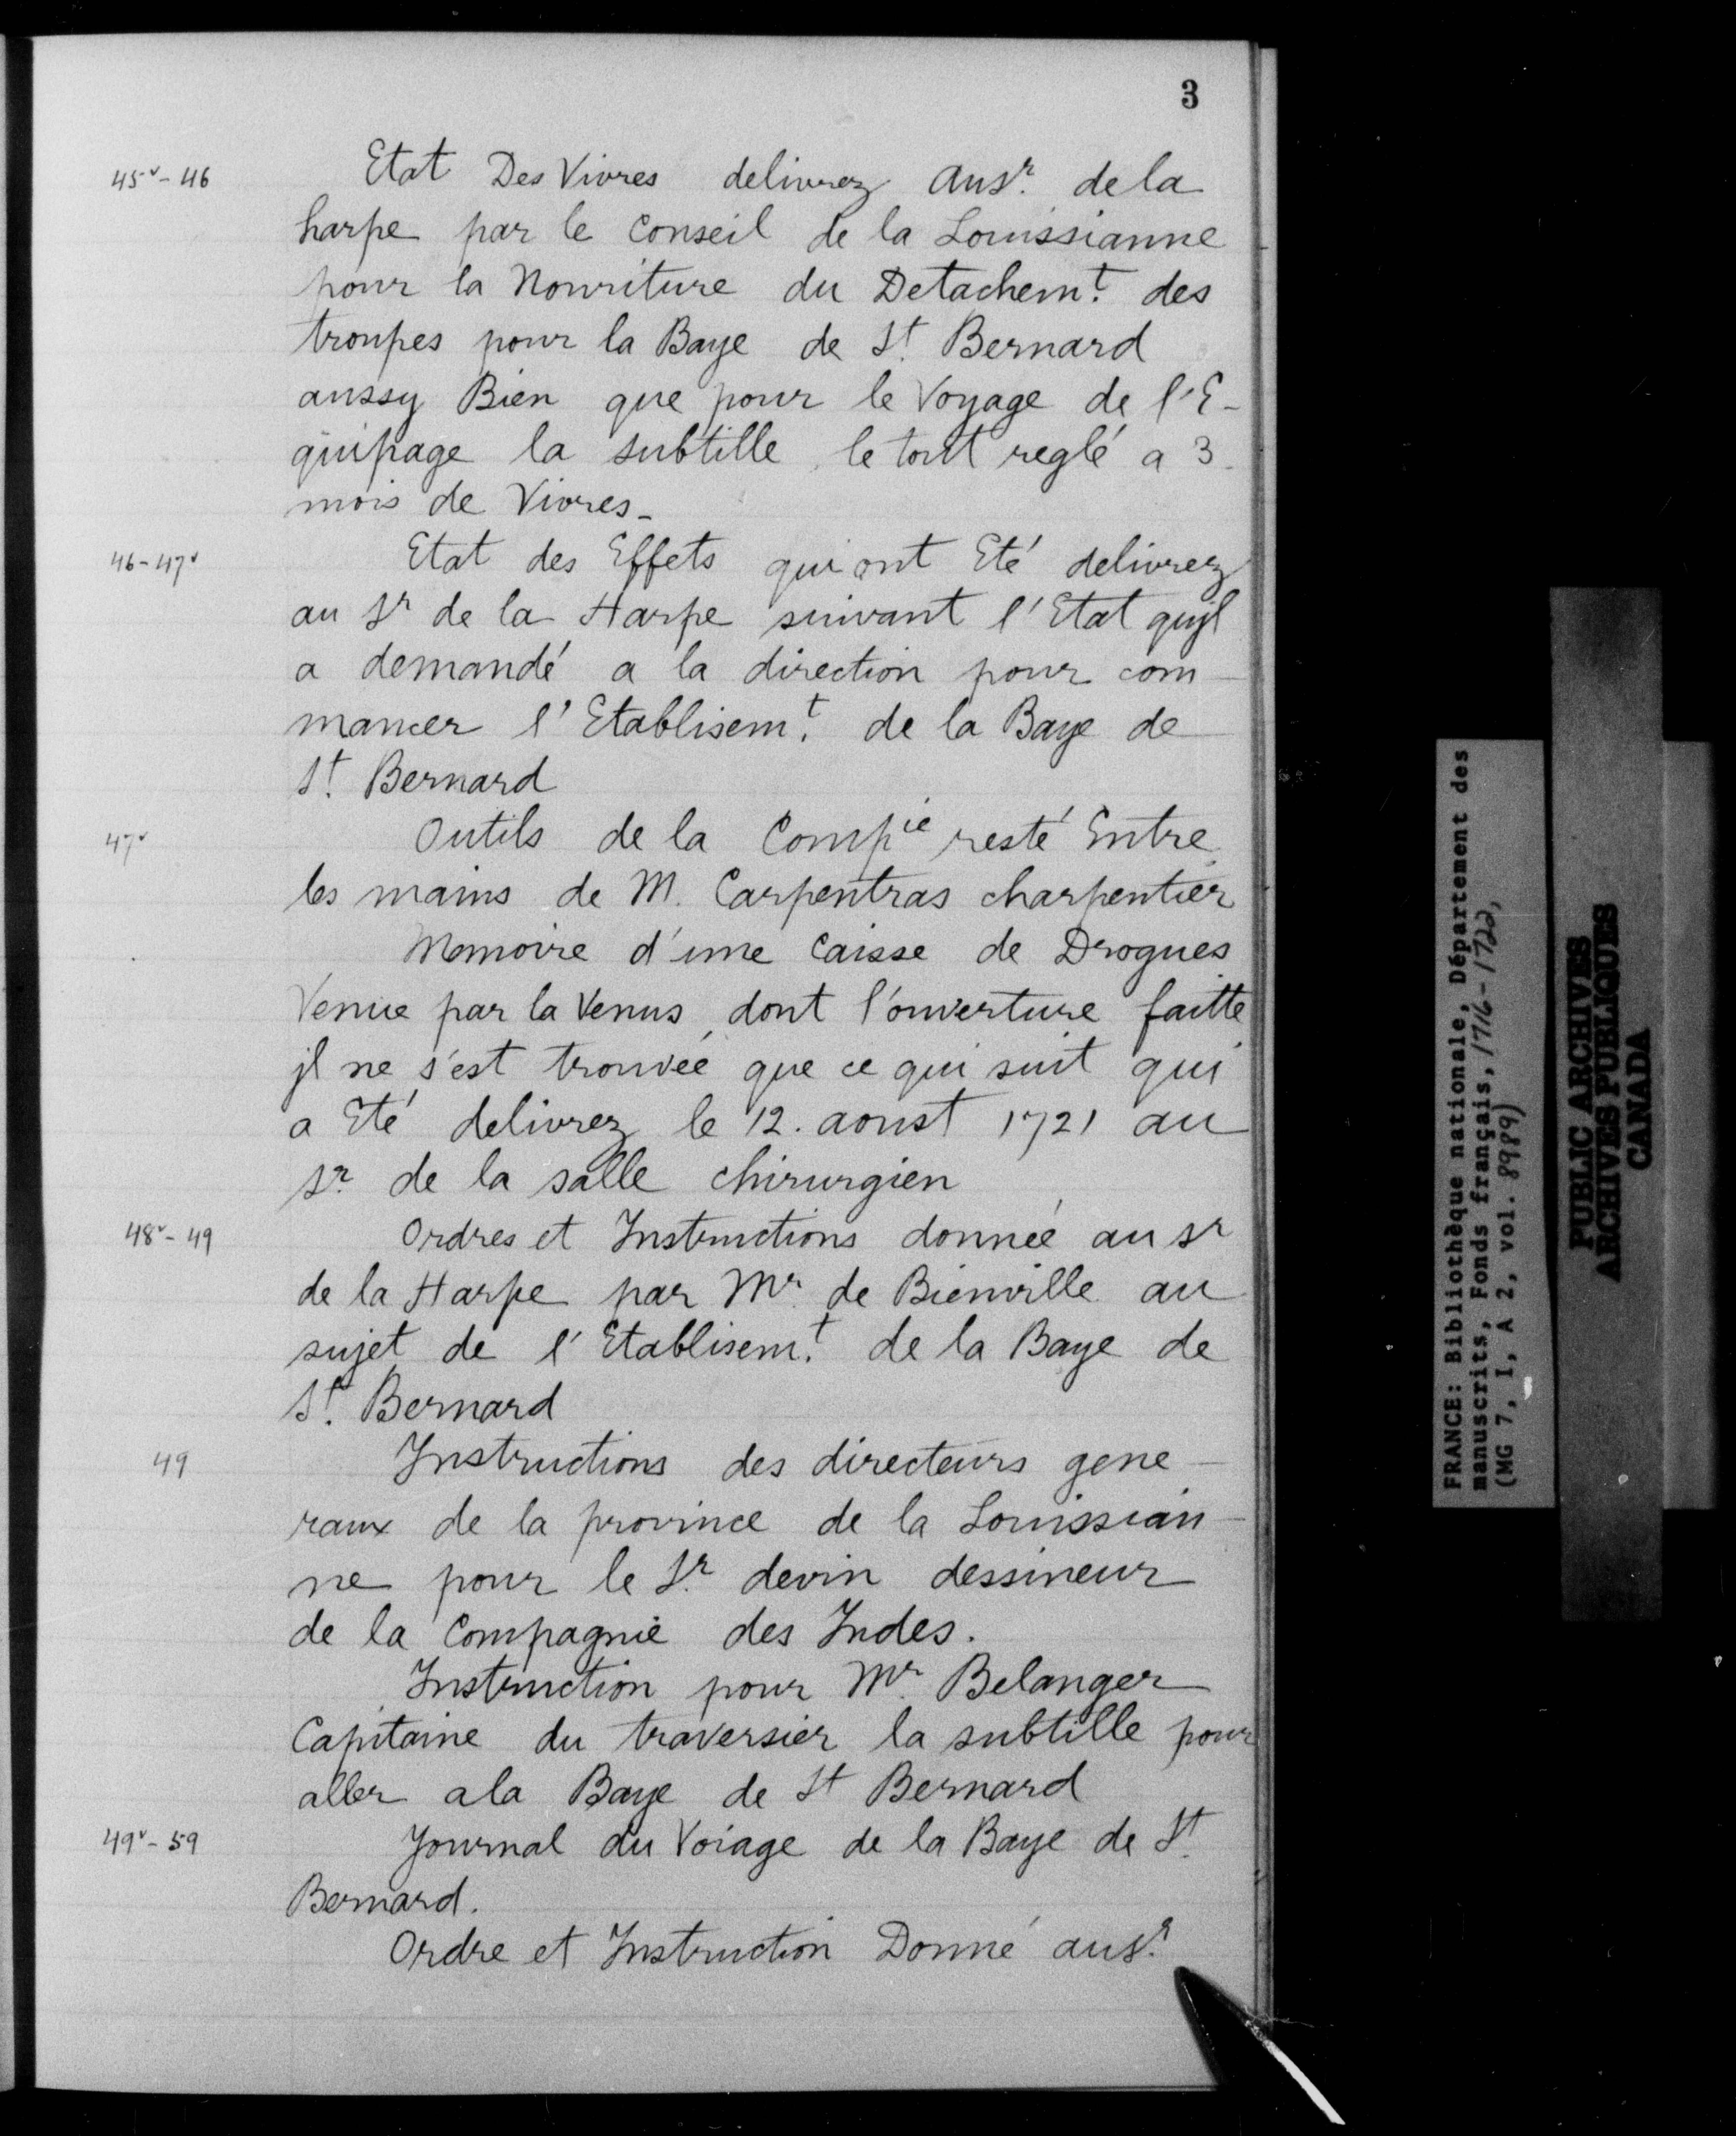 3
45v - 46 Etat Des Vivres delivrez ausr. de la
harpe par le Conseil de la Louissianne
pour la Nourriture du Detachemt. des
troupes pour la Baye de St. Bernard
aussy Bien que pour le Voyage de l'E-
quipage la subtille, le tout reglé a 3
mois de Vivres_
46 - 47v Etat des Effets qui ont Eté delivrez
au Sr de la Harpe suivant l'Etat qu'jl
a demandé a la direction pour com-
mancer l'Etablisemt. de la Baye de
St. Bernard
47v Outils de la Compie resté Entre
les mains de M. Carpentras charpentier
Memoire d'une Caisse de Drogues
Venue par la Venus, dont l'ouverture faitte
jl ne s'est trouvée que ce qui suit qui
a Eté delivrez le 12. aoust 1721 au
sr. de la salle chirurgien
48v - 49 Ordres et Instructions donnée au sr
de la Harpe par Mr. de Bienville au
sujet de l'Etablisemt. de la Baye de
St. Bernard
49 Instructions des directeurs gene-
raux de la province de la Louissian-
ne pour le Sr. devin dessineur
de la Compagnie des Indes.
Instruction pour Mr. Belanger
Capitaine du traversier la subtille pour
aller a la Baye de St Bernard
49v - 59 Journal du Voiage de la Baye de St.
Bernard.
Ordre et Instruction Donné ausr.
FRANCE: Bibliothèque nationale, Département des
manuscrits, Fonds français, 1716-1722,
(MG 7, I, A 2, vol. 8989)
PUBLIC ARCHIVES
ARCHIVES PUBLIQUES
CANADA